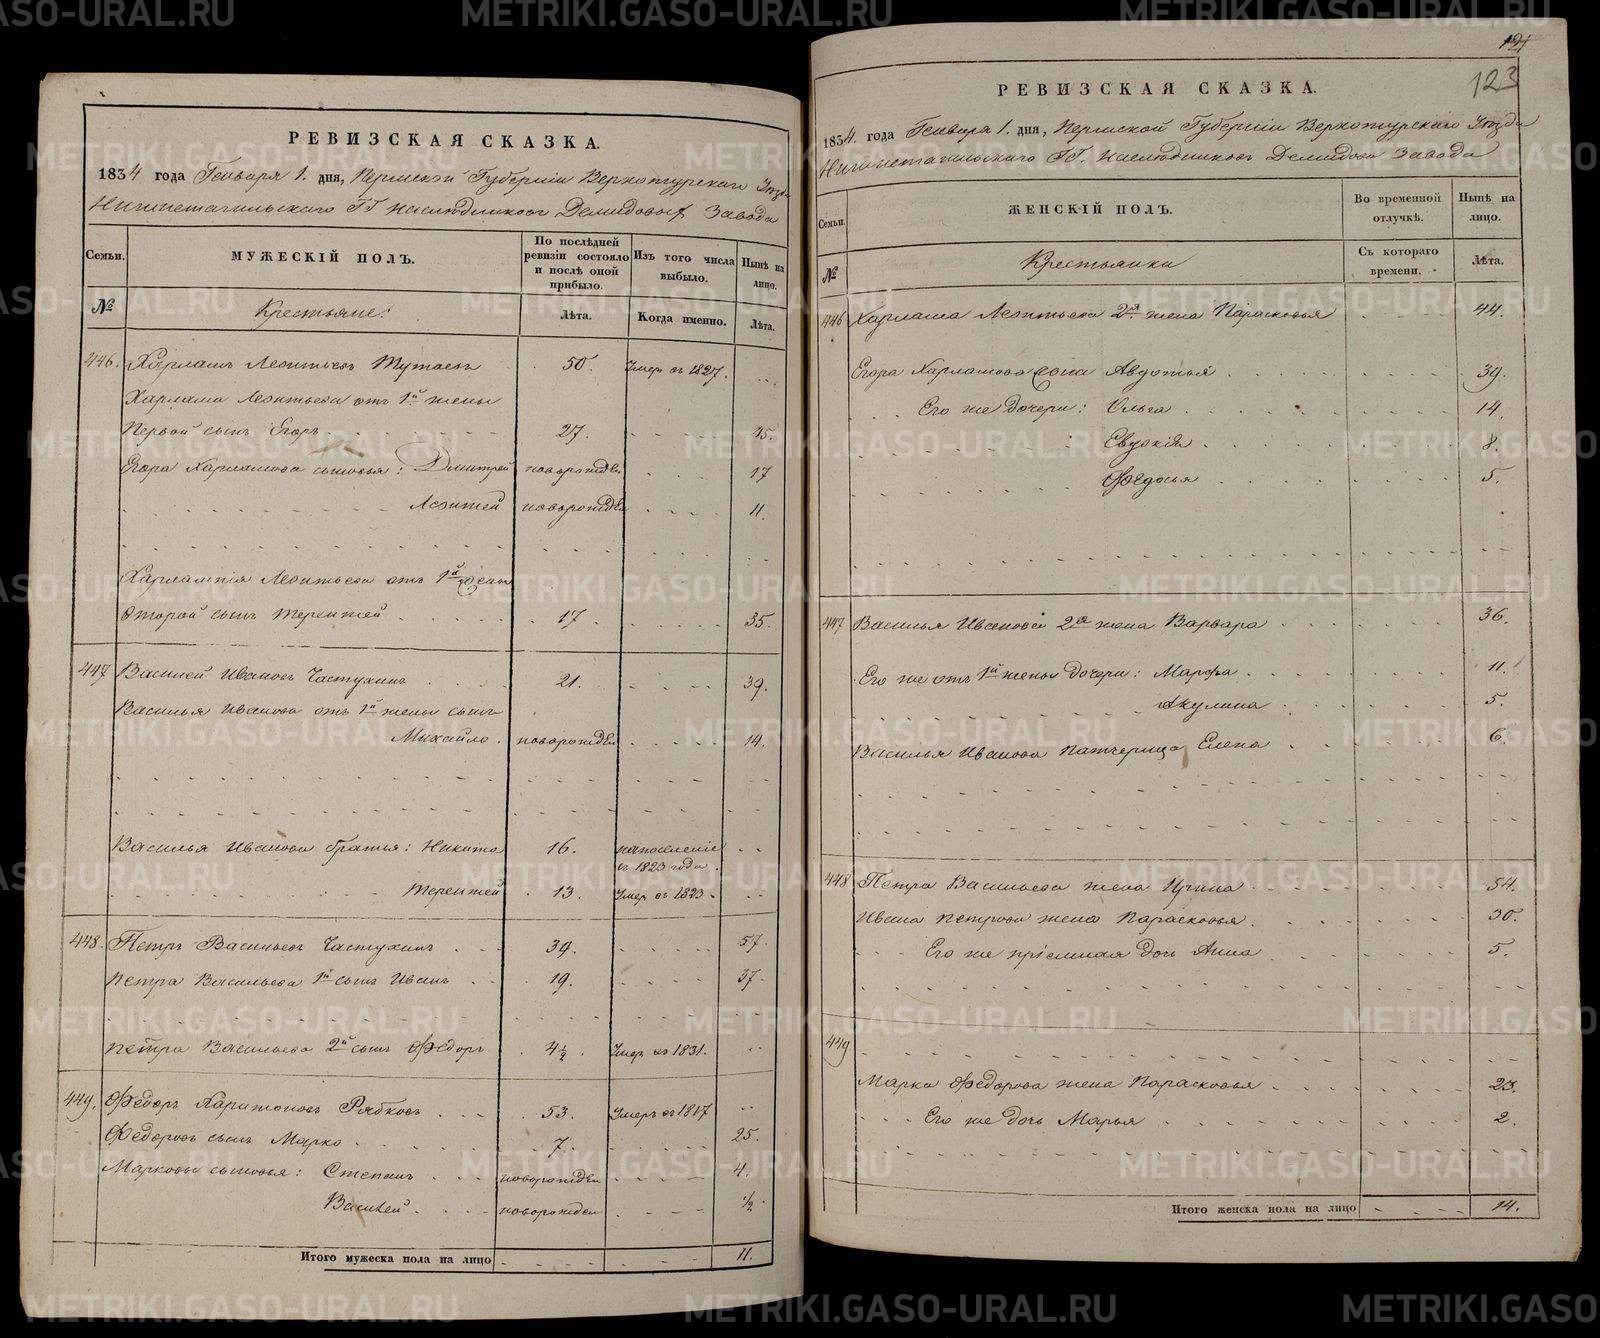 РЕВИЗСКАЯ СКАЗКА.
1834 года Генваря 1. дня, Пермской Губернии Верхотурскаго Уезда
Нижнетагильскаго ГГ наследниковъ Демидовыхъ Завода
Семьи. МУЖЕСКІЙ ПОЛЪ. По послѣдней ревизіи состояло и послѣ оной прибыло. Изъ того числа выбыло. Нынѣ на лицо.
№ Крестьяне: Лѣта. Когда именно. Лѣта.
446. Харламъ Леонтьевъ 50. Умеръ въ 1827.
Харлама Леонтьева отъ 1й жены
Первой сынъ Егоръ 27. 45.
Егора Харламова сыновья: Дмитрей новорожден 17
Леонтей новорожден 11.
Харлампія Леонтьева отъ 1й жены
второй сынъ Терентей 17. 35.
447 Василей Ивановъ Частухинъ 21. 39.
Василья Иванова отъ 1й жены сынъ
Михайло. новорожден 14.
Василья Иванова братья: Никита 16. напоселеніе въ 1823 года.
Терентей 13. Умеръ въ 1823.
448. Петръ Васильевъ Частухинъ 39. 57.
Петра Васильева 1й сынъ Иванъ 19. 37.
Петра Васильева 2й сынъ Федоръ 4½. Умеръ въ 1831.
449. Федоръ Харитоновъ Рябковъ 53. Умеръ въ 1817
Федоровъ сынъ Марко 7. 25.
Марковы сыновья: Степанъ новорожден 4.
Василей новорожден ½.
Итого мужеска пола на лицо 11.
123
РЕВИЗСКАЯ СКАЗКА.
1834. года Генваря 1. дня, Пермской Губерніи Верхотурскаго Уезда
Нижнетагильскаго ГГ. наследниковъ Демидовы Завода
Семьи. ЖЕНСКІЙ ПОЛЪ. Во временной отлучкѣ. Нынѣ на лицо.
№ Крестьянки Съ котораго времени. Лѣта.
446 Харлама Леонтьева 2я жена Парасковья 44.
Егора Харламова жена Авдотья 39.
Его же дочери: Ольга 14.
Евдокія 8.
Федосья 5.
447 Василья Иванова 2я жена Варвара 36.
Его же отъ 1й жены дочери: Марфа 11.
Акулина 5.
Василья Иванова Патчерица Елена 6.
448 Петра Васильева жена Ирина 54.
Ивана Петрова жена Парасковья. 30.
Его же пріемная дочь Анна 5.
449
Марка Федорова жена Парасковья 23.
Его же дочь Марья 2.
Итого женска пола на лицо 14.
METRIKI.GASO-URAL.RU